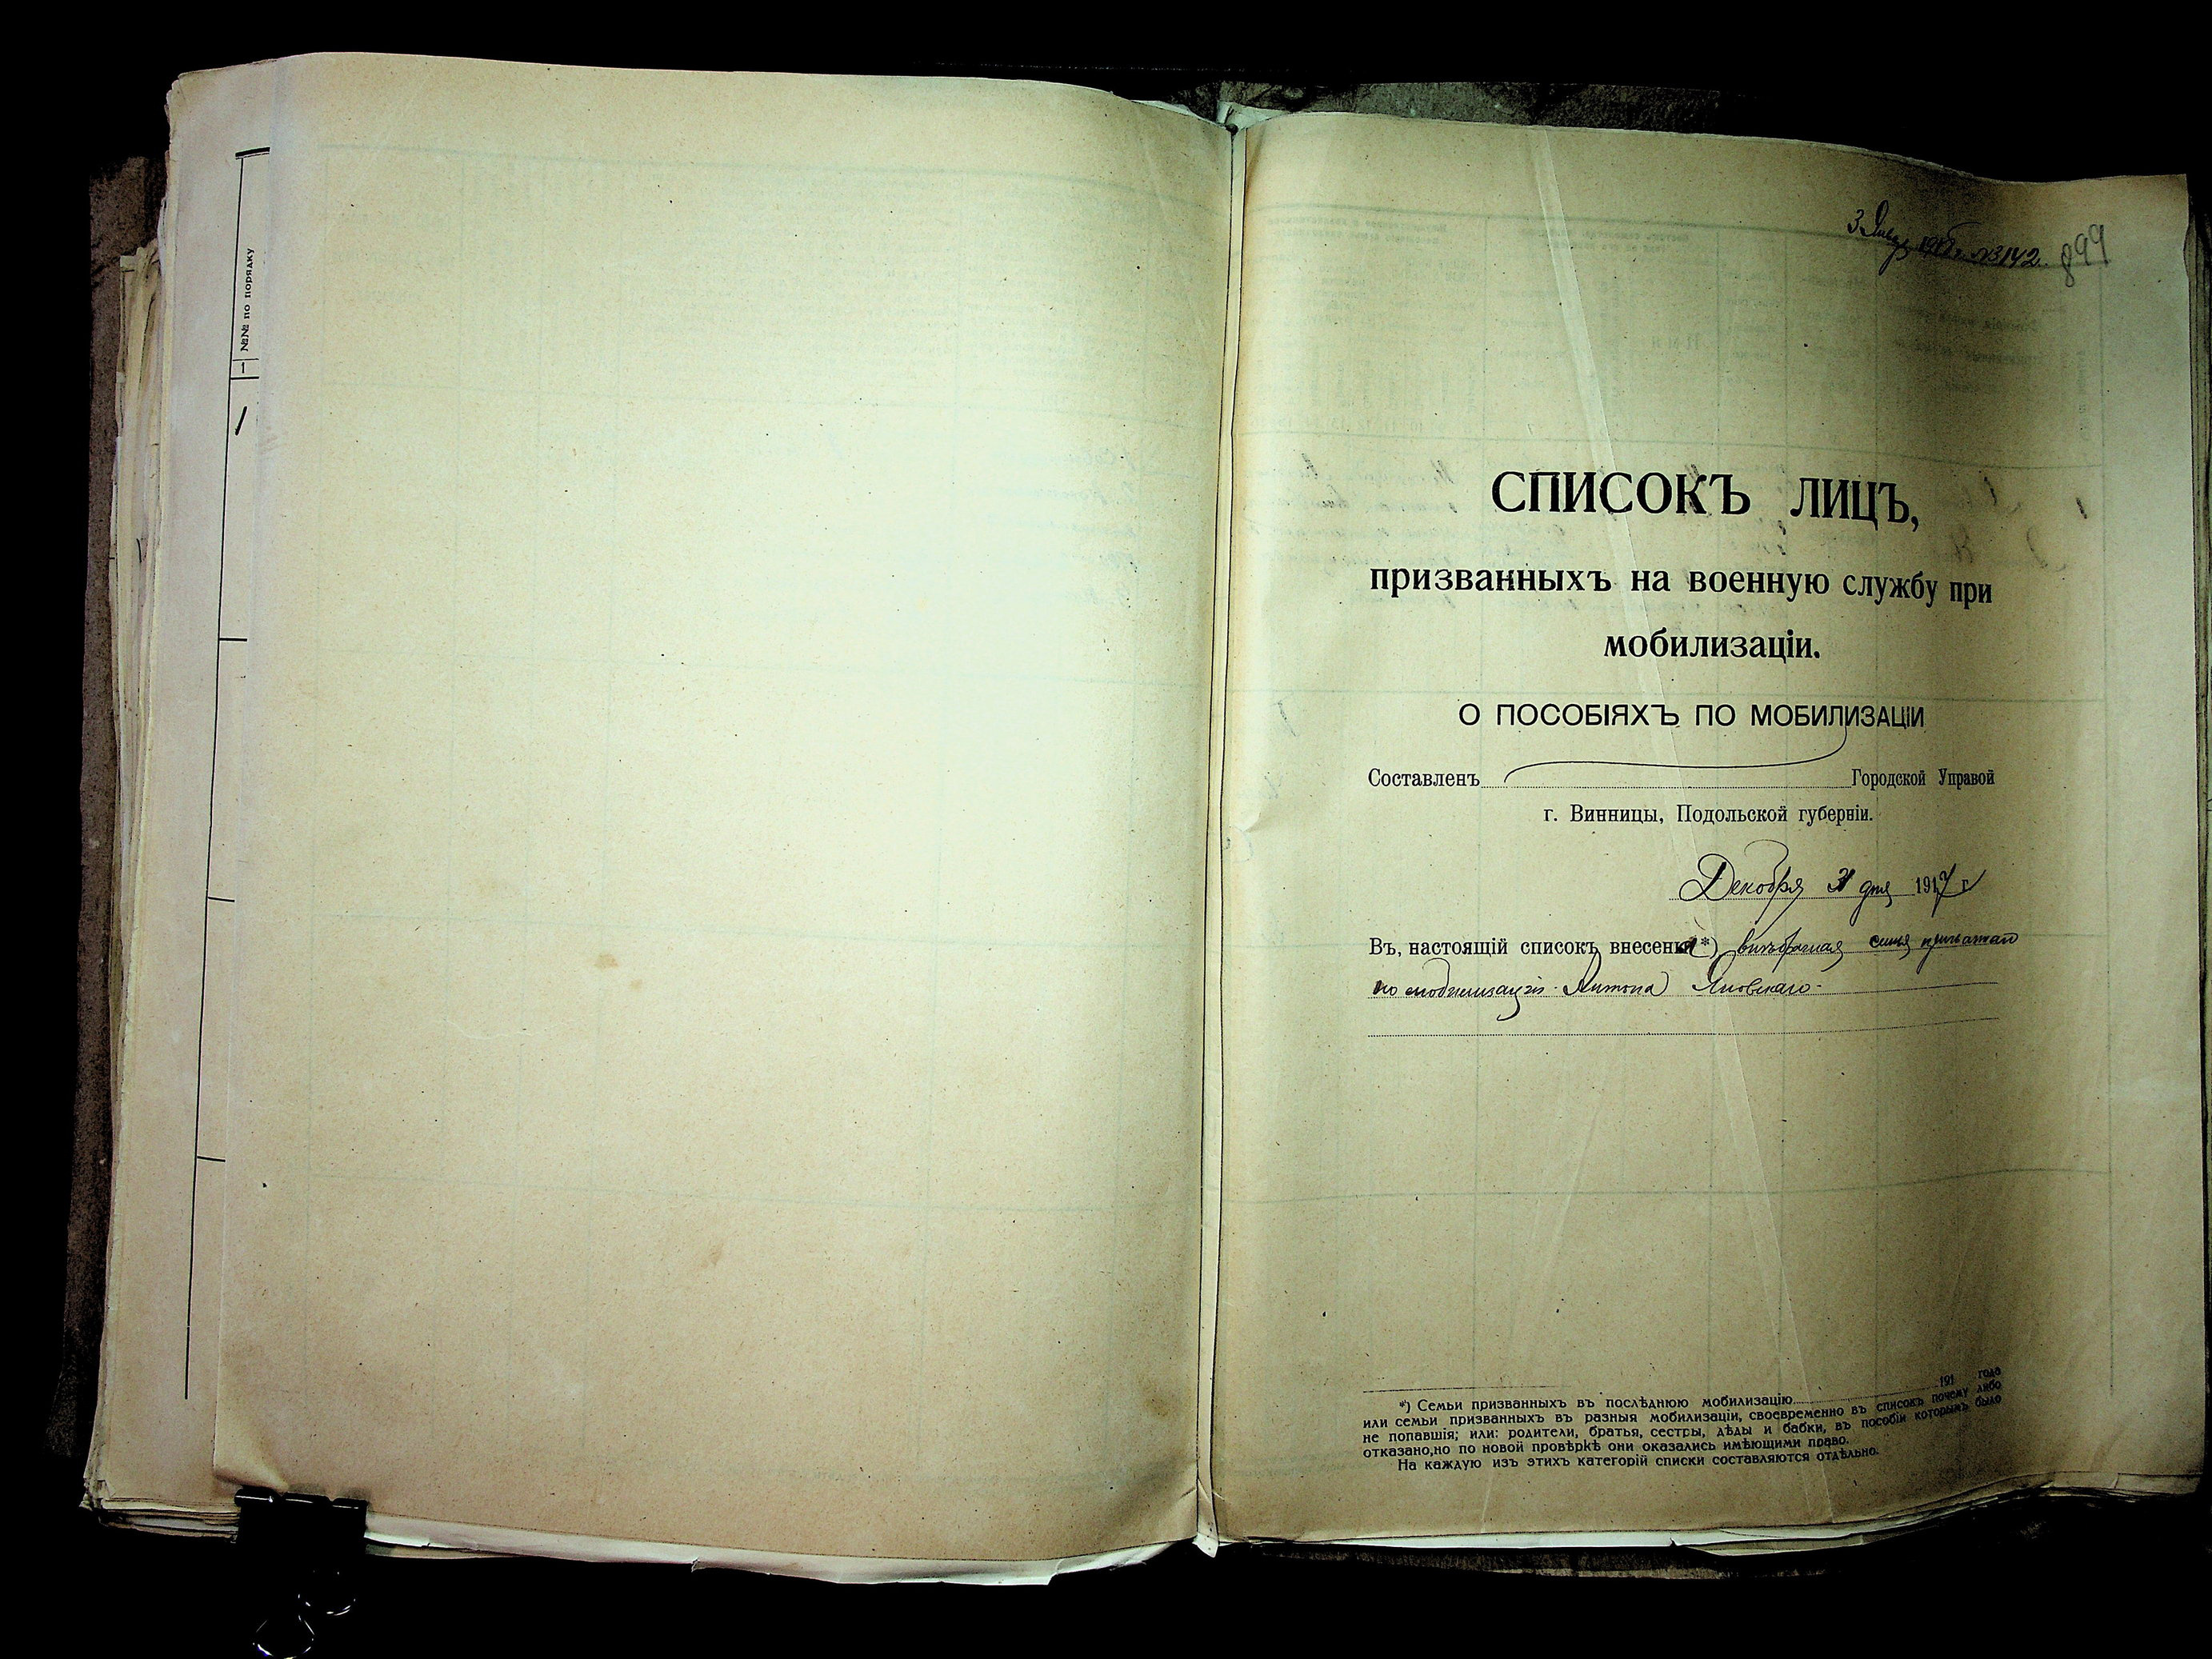 №№ по порядку
1
3 Января 1918 г. №3142. 899
СПИСОКЪ ЛИЦЪ,
призванныхъ на военную службу при
мобилизаціи.
О ПОСОБІЯХЪ ПО МОБИЛИЗАЦІИ
Составленъ Городской Управой
г. Винницы, Подольской губерніи.
Декабря 31 дня 1917 г
Въ настоящій списокъ внесена*) семья
по мобилизаціи Антона Яновскаго
*) Семьи призванныхъ въ послѣднюю мобилизацію 191 года
или семьи призванныхъ въ разныя мобилизаціи, своевременно въ списокъ почему либо
не попавшія; или: родители, братья, сестры, дѣды и бабки, въ пособіи которымъ было
отказано,но по новой провѣркѣ они оказались имѣющими право.
На каждую изъ этихъ категорій списки составляются отдѣльно.